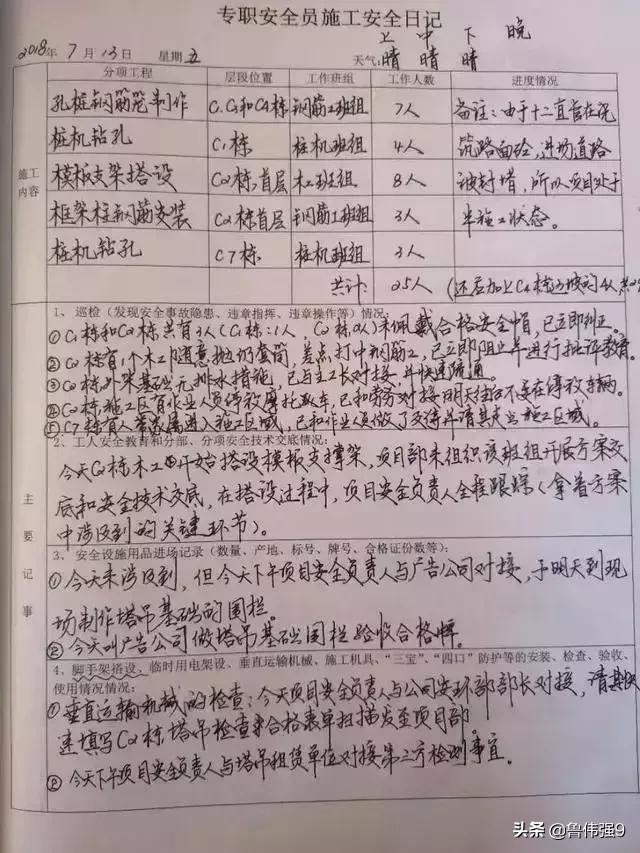 专职安全员施工安全日记
上 中 下 晚
2018年 7月13日 星期五 天气:晴 晴 晴
分项工程 层段位置 工作班组 工作人数 进度情况
施工内容
孔桩钢筋笼制作 钢筋工班组 7人 备注:由于十二直管在浇
桩机钻孔 C1栋 桩机班组 4人 筑路面砼,进场道路
模板支架搭设 C2栋首层 木工班组 8人 被封堵,所以项目处于
框架柱钢筋安装 C2栋首层 钢筋工班组 3人 半施工状态。
桩机钻孔 C7栋 桩机班组 3人
共计: 25人
主要记事
1、巡检(发现安全事故隐患、违章指挥、违章操作等)情况:
①C1栋和C2栋共有3人(C1栋:1人,C2栋2人)未佩戴合格安全帽,已立即纠正。
②C2栋有1个木工随意抛扔套筒,差点打中钢筋工,已立即阻止并进行批评教育。
③C2栋外架基础无排水措施,已与工长对接,并快速疏通。
④C2栋施工区有作业人员停放摩托车,已和劳务对接明天往后不要在停放车辆。
⑤C7栋有人带家属进入施工区域,已和作业人员做了交待并请其走出施工区域。
2、工人安全教育和分部、分项安全技术交底情况:
今天C2栋木工开始搭设模板支撑架,项目部未组织该班组开展方案交
底和安全技术交底,在搭设过程中,项目安全负责人全程跟踪(拿着方案
中涉及到的关键环节)。
3、安全设施用品进场记录(数量、产地、标号、牌号、合格证份数等):
①今天未涉及到,但今天下午项目安全负责人与广告公司对接,于明天到现
场制作塔吊基础的围栏。
②今天叫广告公司做塔吊基础围栏验收合格牌。
4、脚手架搭设、临时用电架设、垂直运输机械、施工机具、“三宝”、“四口”防护等的安装、检查、验收、
使用情况情况:
①垂直运输机械的检查:今天项目安全负责人与公司安环部部长对接,请其快
速填写C2栋塔吊检查合格表单扫描发至项目部。
②今天下午项目安全负责人与塔吊租赁单位对接第三方检测事宜。
头条 @鲁伟强9